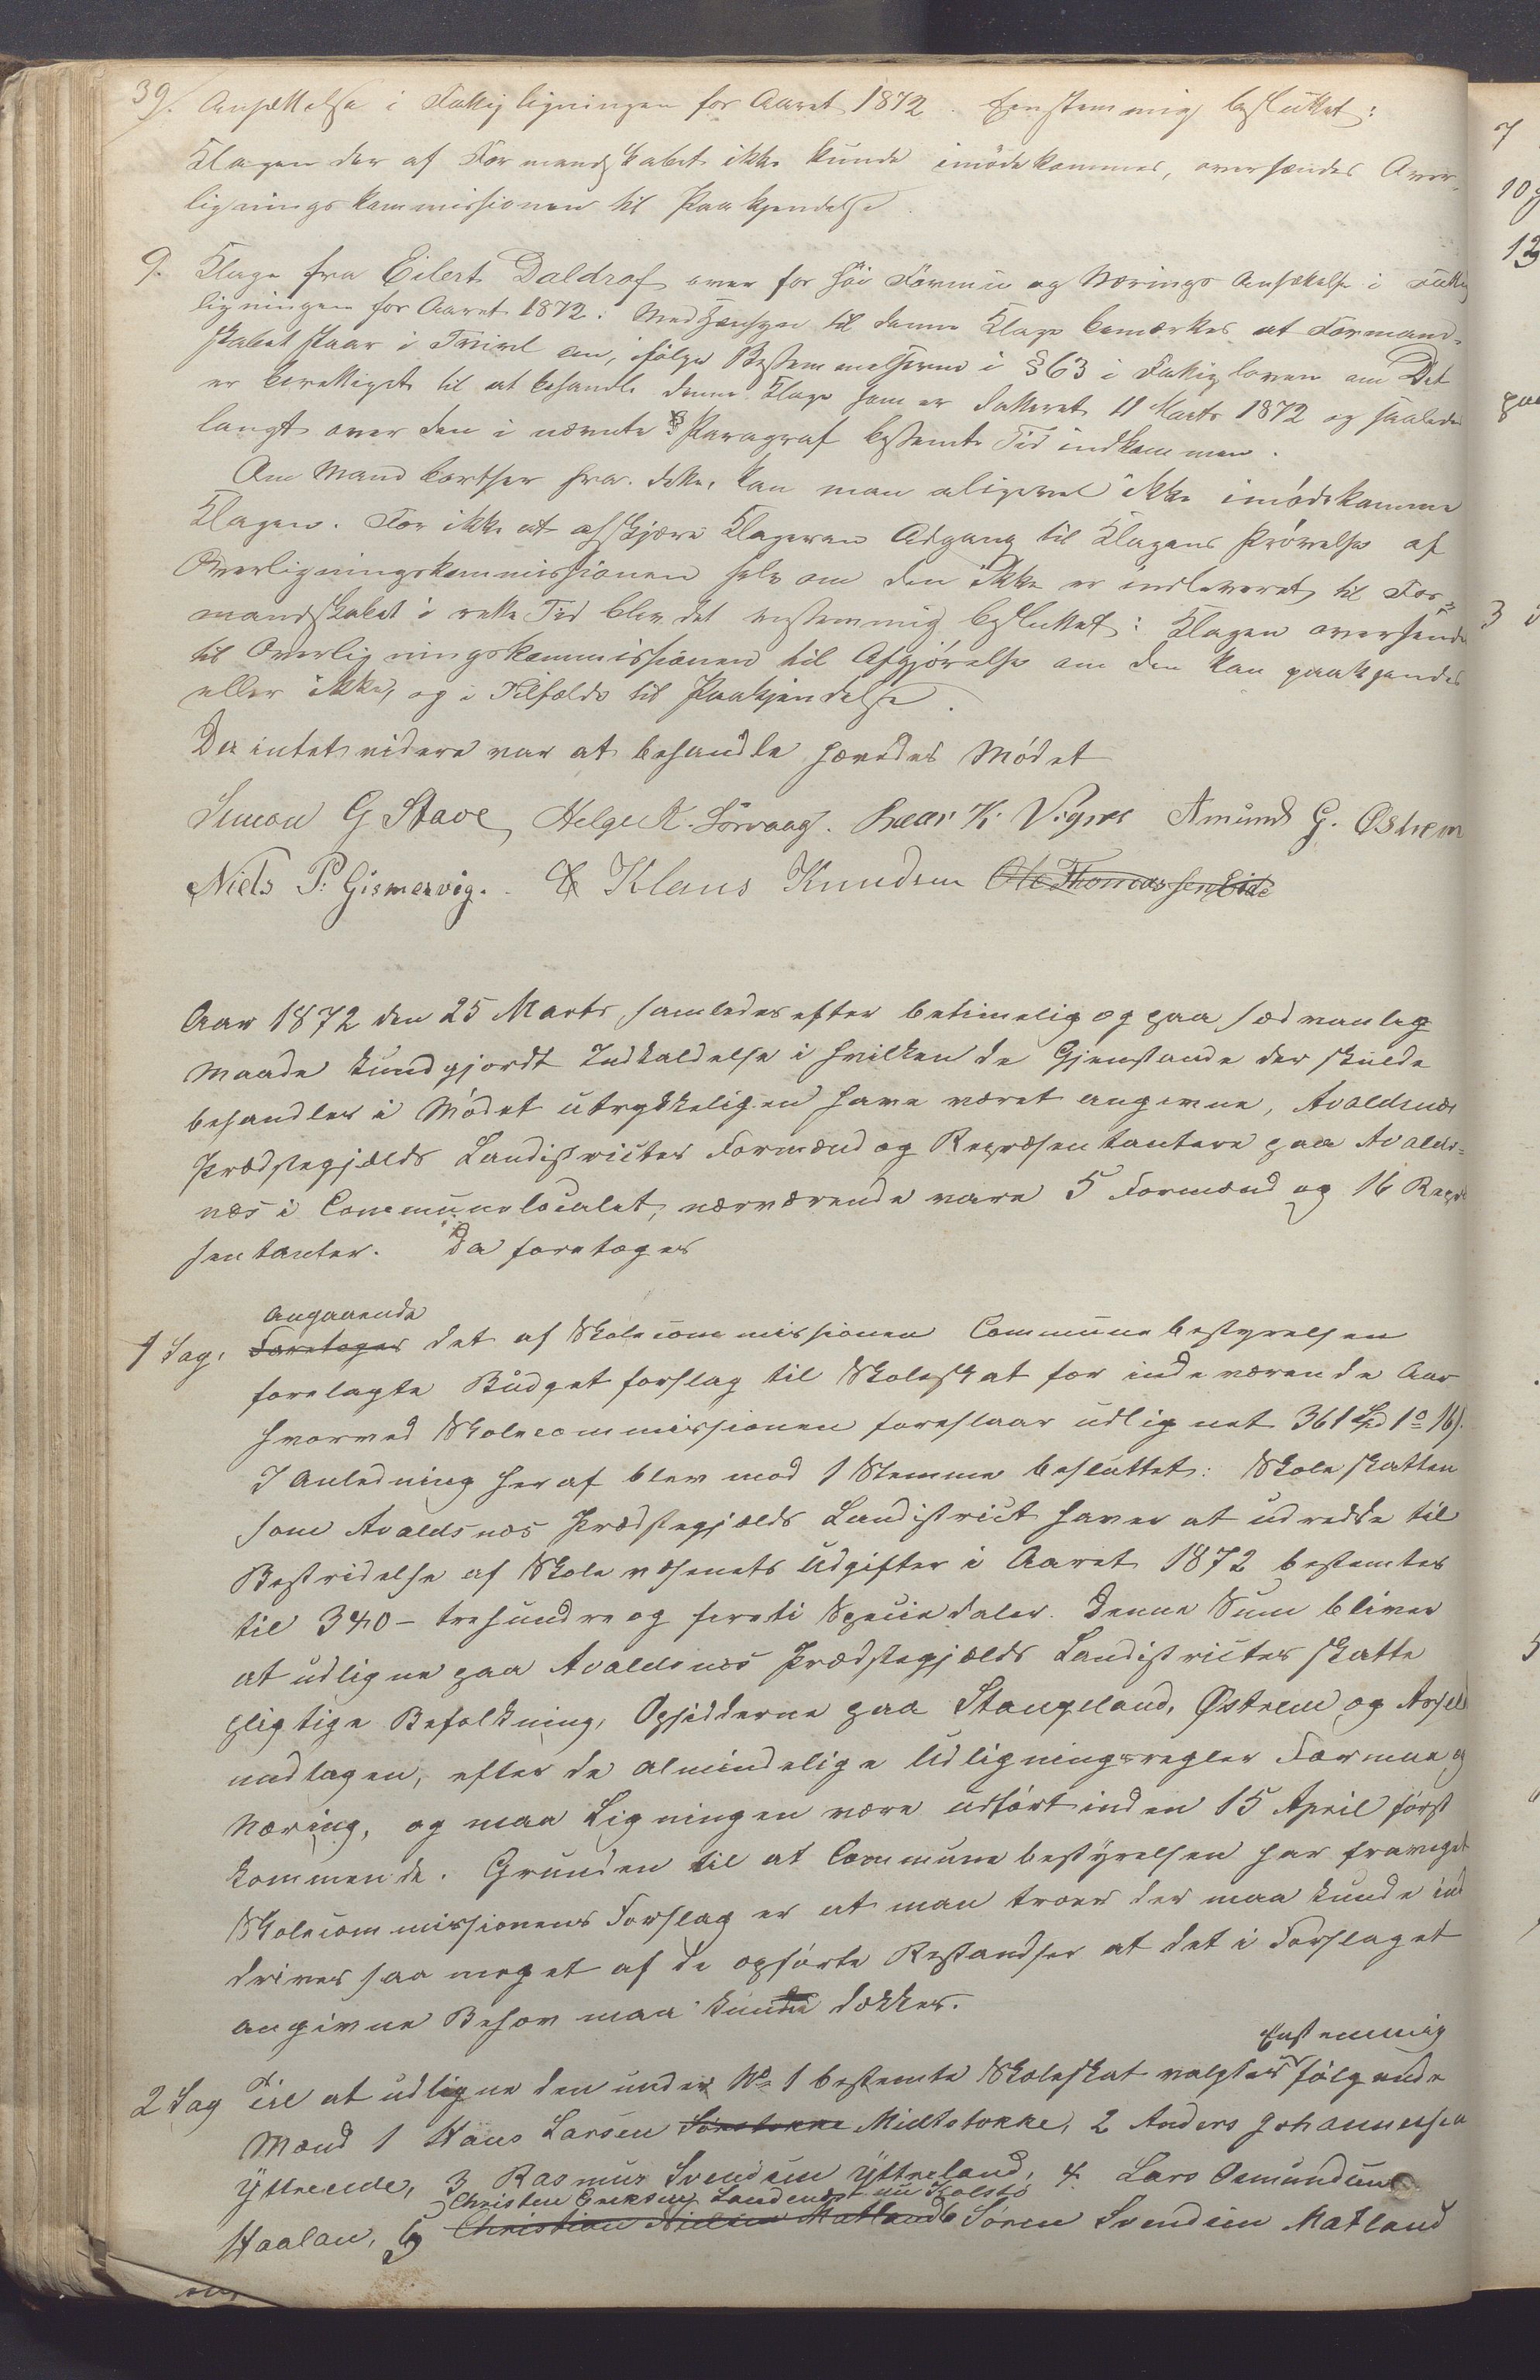 39. Ansættelse i Fattigligningen for Aaret 1872. Eenstemmig besluttet:
Klagen der af Formandskabet ikke kunde imødekommes, oversændes Over-
ligningskommissionen til Paakjendelse.
9. Klage fra Eilert Daldrof over for høi Formue og Nærings Ansættelse i Fattig
ligningen for Aaret 1872: Med Hensyn til denne Klage bemærkes at Formand-
skabet staar i Tvivl om, ifølge Bestemmelserne i § 63 i Fattigloven om Det
er berettiget til at behandle denne Klage som er datteret 11 Marts 1872 og saaledes
langt over den i nævnte Paragraf bestemte Tid indkommen.
Om Mand bortser fra dette, kan man aligevel ikke imødekomme
Klagen. For ikke at afskjære Klageren Adgang til Klagens Prøvelse af
Overligningskommissionen selv om den ikke er indleveret til For-
mandskabet i rette Tid blev det enstemmig besluttet: Klagen oversendes
til Overligningskommissionen til Afgjørelse om den kan paakjendes
eller ikke, og i Tilfælde til Paakjendelse.
Da intet videre var at behandle hævedes Mødet
Simon G Stave, Helge K. Sörvaag. K. Vignes Amund G. Østrem
Niels P. Gismervig. Klaus Knudsen Ole Thomassen Eide
Aar 1872 den 25 Marts samledes efter betimelig og paa sædvanlig
Maade kundgjordt Indkaldelse i hvilken de Gjenstande der skulde
behandles i Mødet utrykkeligen have været angivne, Avaldsnæs
Prædstegjælds Landistricts Formænd og Repræsentantere paa Avalds-
næs i Communelocalet, nærværende vare 5 Formænd og 16 Repræ
sentanter. Da foretoges
Angaaende
1 Sag. Foretoges det af Skolecommissionen Communebestyrelsen
forelagte Budget forslag til Skoleskat for indeværende Aar
hvorved Skolecommissionen foreslaar udlignet 361 Spd 1 o 16 s.
I Anledning heraf blev mod 1 Stemme besluttet: Skoleskatten
som Avaldsnæs Prædstegjælds Landistrict haver at udredde til
Bestridelse af Skolevæsenets Udgifter i Aaret 1872 bestemtes
til 340 - trehundre og forti Speciedaler. Denne Sum bliver
at udligne paa Avaldsnæs Prædstegjælds Landistricts skatte
pligtige Befolkning, Opsidderne paa Stangeland, Østrem og
undtagen, efter de almindelige Udligningsregler Formue og
Næring, og maa Ligningen være udført inden 15 April først
kommende. Grunden til at Communebestyrelsen har fraveget
Skolecommissionens Forslag er at man troer der maa kunde ind
drives saa meget af de opførte Restandser at det i Forslaget
angivne Behov maa kunde dækkes.
Enstemmig
2 Sag Til at udligne den under No 1 bestemte Skoleskat valgtes følgende
Mænd 1 Hans Larsen Sørstokke Midtstokke, 2 Anders Johannessen
Yttreeide, 3 Rasmus Svendsen Yttreland, 4 Lars Osmundsen
Christen Eriksen Sandends nu Kolstø
Haaland, 5 Christian Nielsen Matland 6 Sören Svendsen Matland